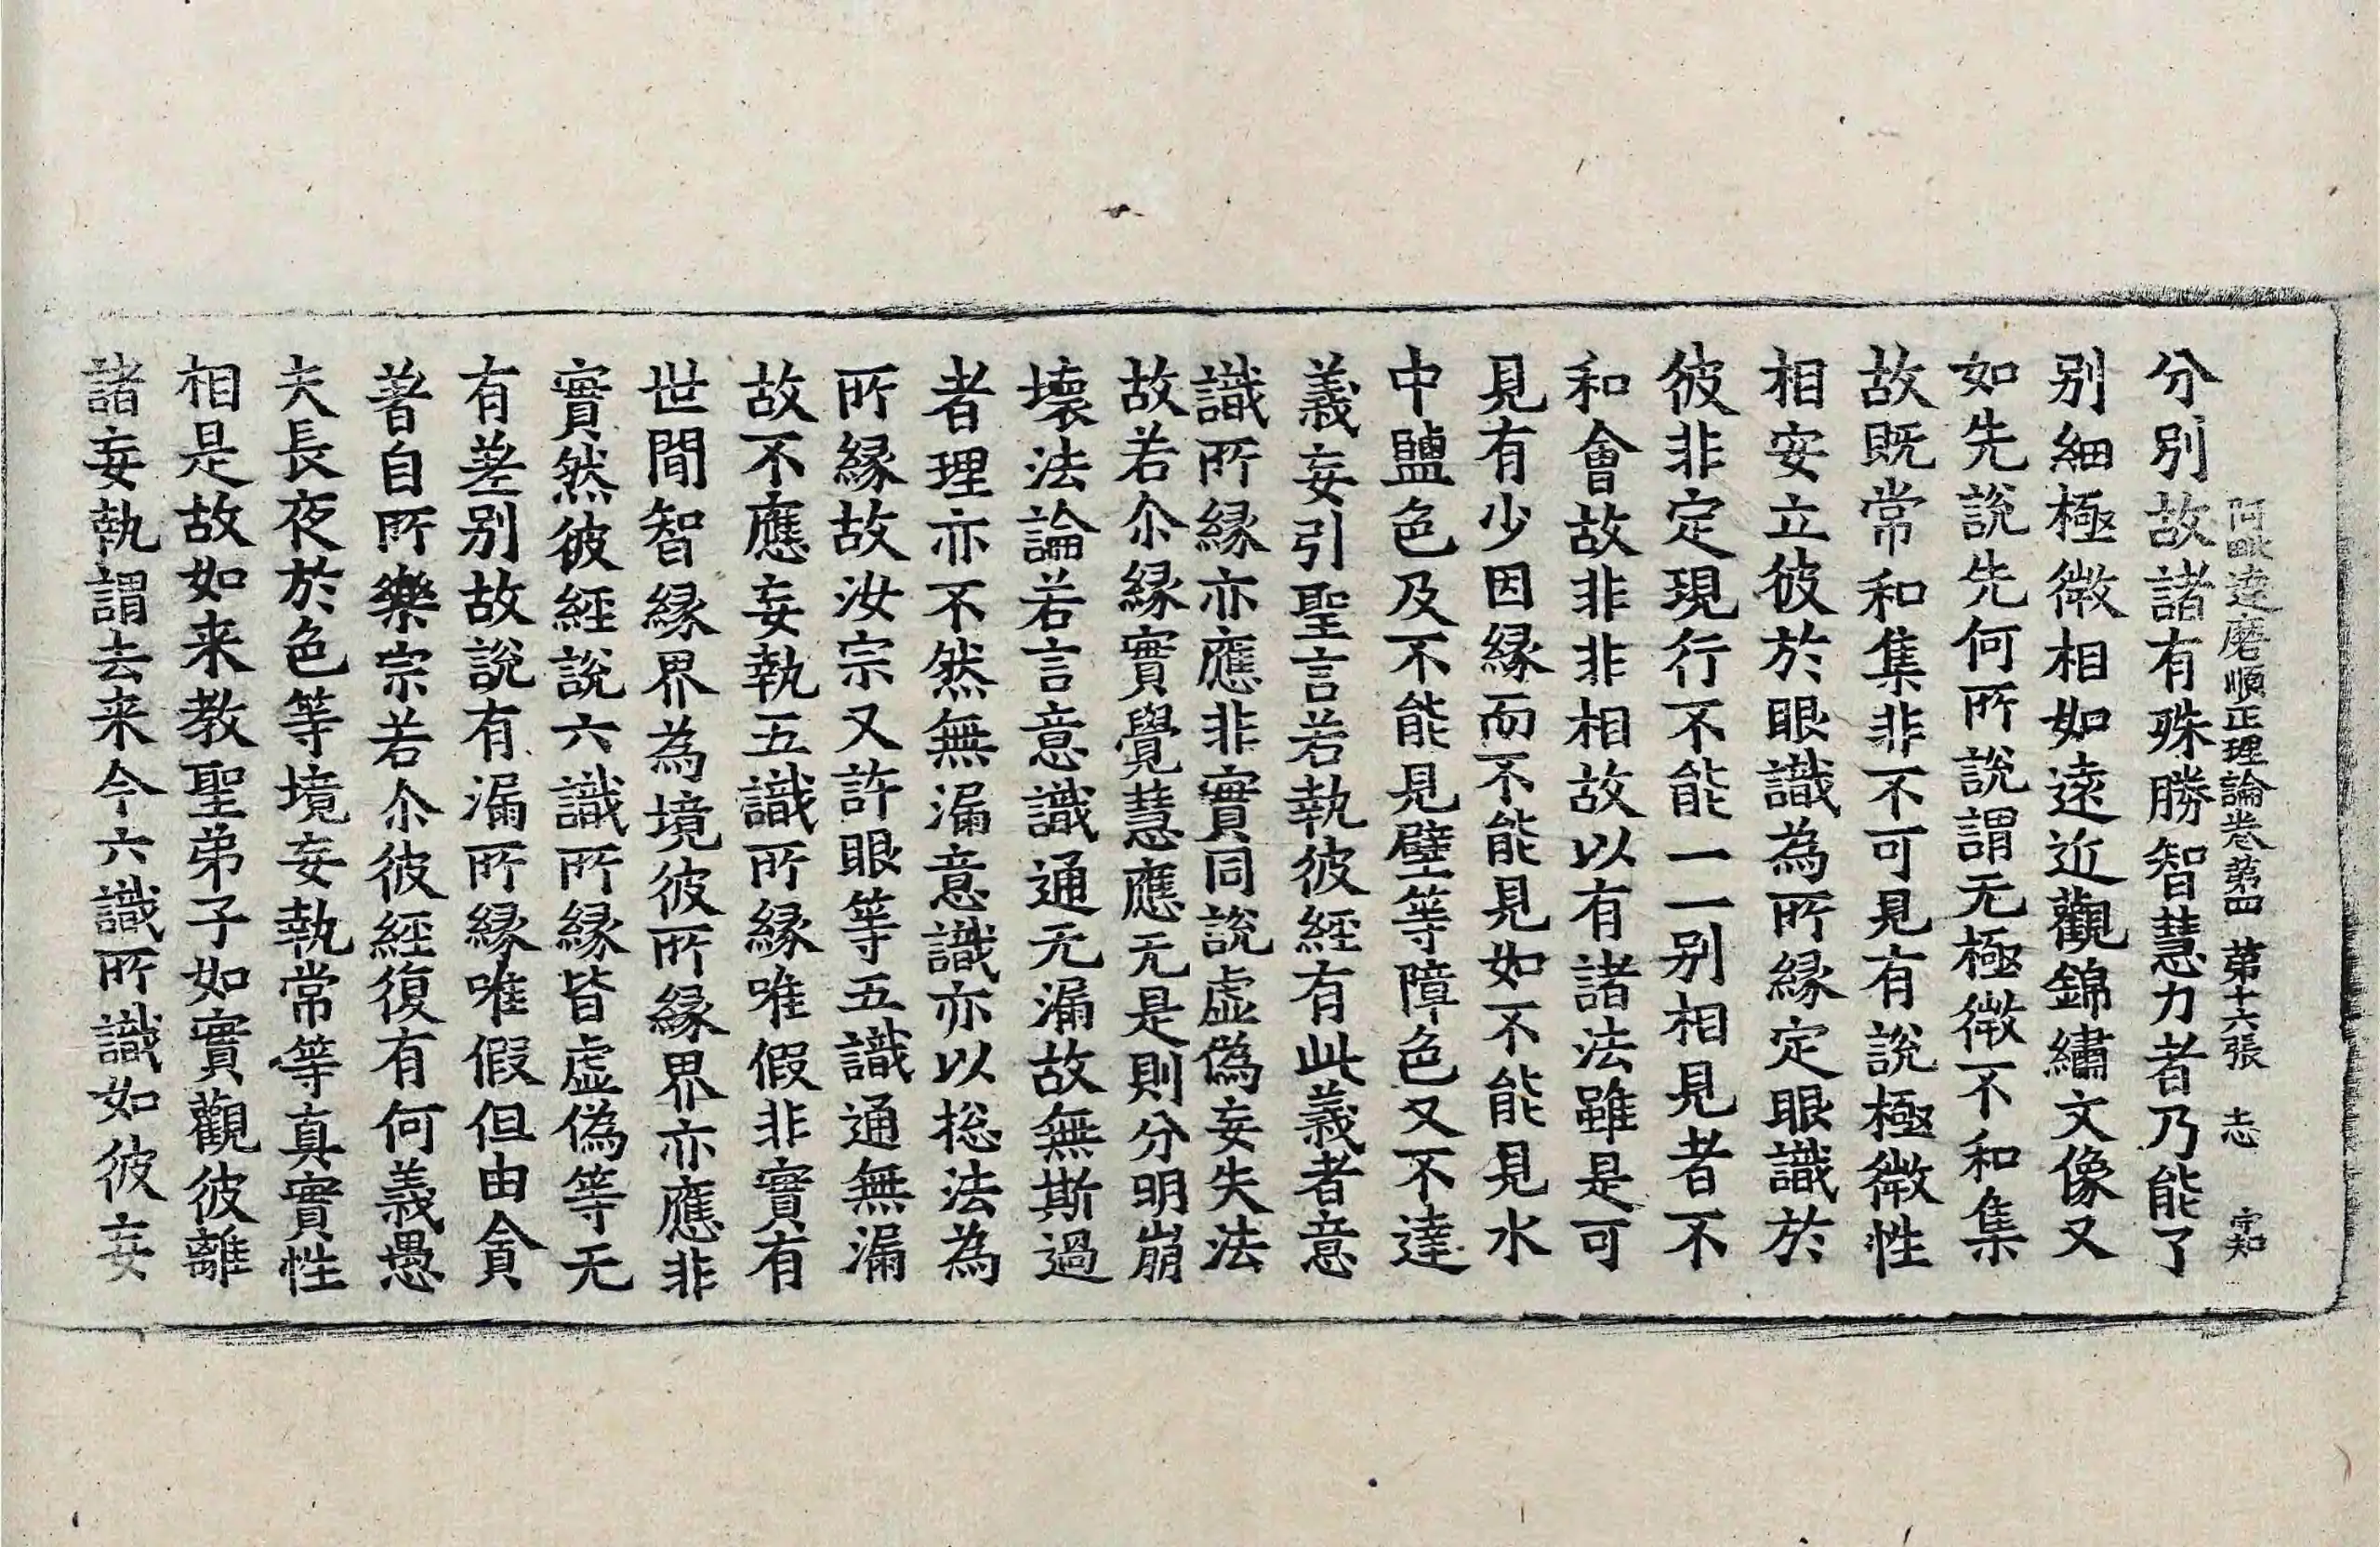 阿毗達磨順正理論卷第四 第十六張 志 守知
分別故諸有殊勝智慧力者乃能了
别細極微相如遠近觀錦繡文像又
如先說先何所說謂无極微不和集
故既常和集非不可見有說極微性
相安立彼於眼識為所緣定眼識於
彼非定現行不能一一别相見者不
和會故非非相故以有諸法雖是可
見有少因緣而不能見如不能見水
中鹽色及不能見壁等障色又不達
義妄引聖言若執彼經有此義者意
識所緣亦應非實同說虛偽妄失法
故若尒緣實覺慧應无是則分明崩
壞法論若言意識通无漏故無斯過
者理亦不然無漏意識亦以揔法為
所緣故汝宗又許眼等五識通無漏
故不應妄執五識所緣唯假非實有
世間智緣界為境彼所緣界亦應非
實然彼經說六識所緣皆虛偽等无
有差别故說有漏所緣唯假但由貪
著自所樂宗若尒彼經復有何義愚
夫長夜於色等境妄執常等真實性
相是故如来教聖弟子如實觀彼離
諸妄執謂去来今六識所識如彼妄